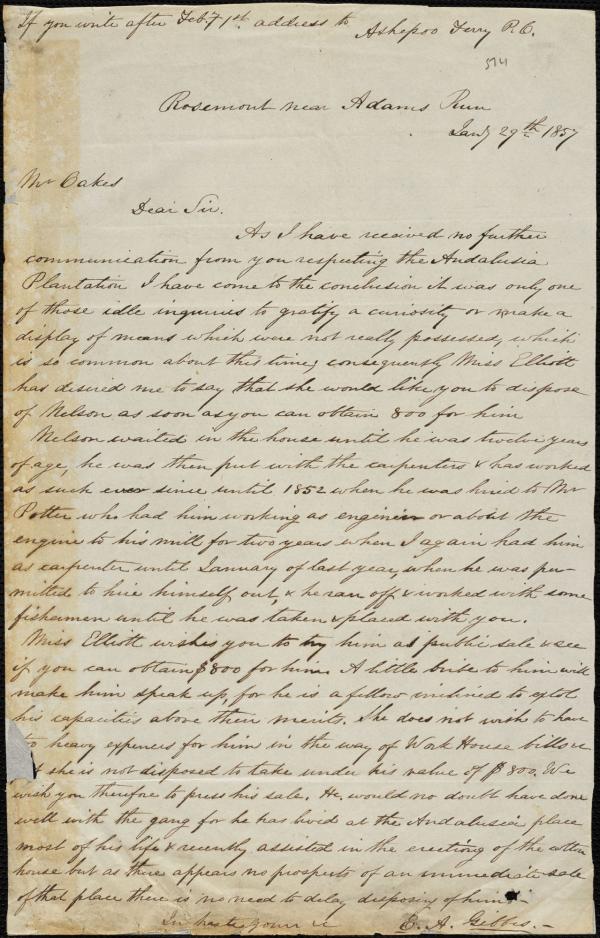 If you write after Feby 1st address to
Ashepoo Ferry P.O.
574
Rosemont near Adams Run
Jany 29th 1857
Mr Oakes
Dear Sir.
As I have received no further
communication from you respecting the Andalusia
Plantation I have come to the conclusion it was only one
of those idle inquiries to gratify a curiosity or make a
display of means which were not really possessed, which
is so common about this time, consequently Miss Elliott
has desired me to say that she would like you to dispose
of Nelson as soon as you can obtain 800 for him
Nelson waited in the house until he was twelve years
of age, he was then put with the carpenters & has worked
as such ever since until 1852 when he was hired to Mr
Potter who had him working as engineer or about the
engine to his mill for two years when I again had him
as carpenter until January of last year, when he was per-
mitted to hire himself out, & he ran off & worked with some
fishermen until he was taken & placed with you.
Miss Elliott wishes you to try him at public sale & see
if you can obtain $800 for him. A little bribe to him will
make him speak up, for he is a fellow inclined to extol
his capacities above their merits. She does not wish to have
to heavy expences for him in the way of Work House bills &c
she is not disposed to take under his value of $800. We
wish you therefore to press his sale. He would no doubt have done
well with the gang for he has lived at the Andalusia place
most of his life & recently assisted in the erecting of the cotton
house but as there appears no prospects of an immediate sale
of that place there is no need to delay disposing of him.
In haste yours &c E. A. Gibbes.